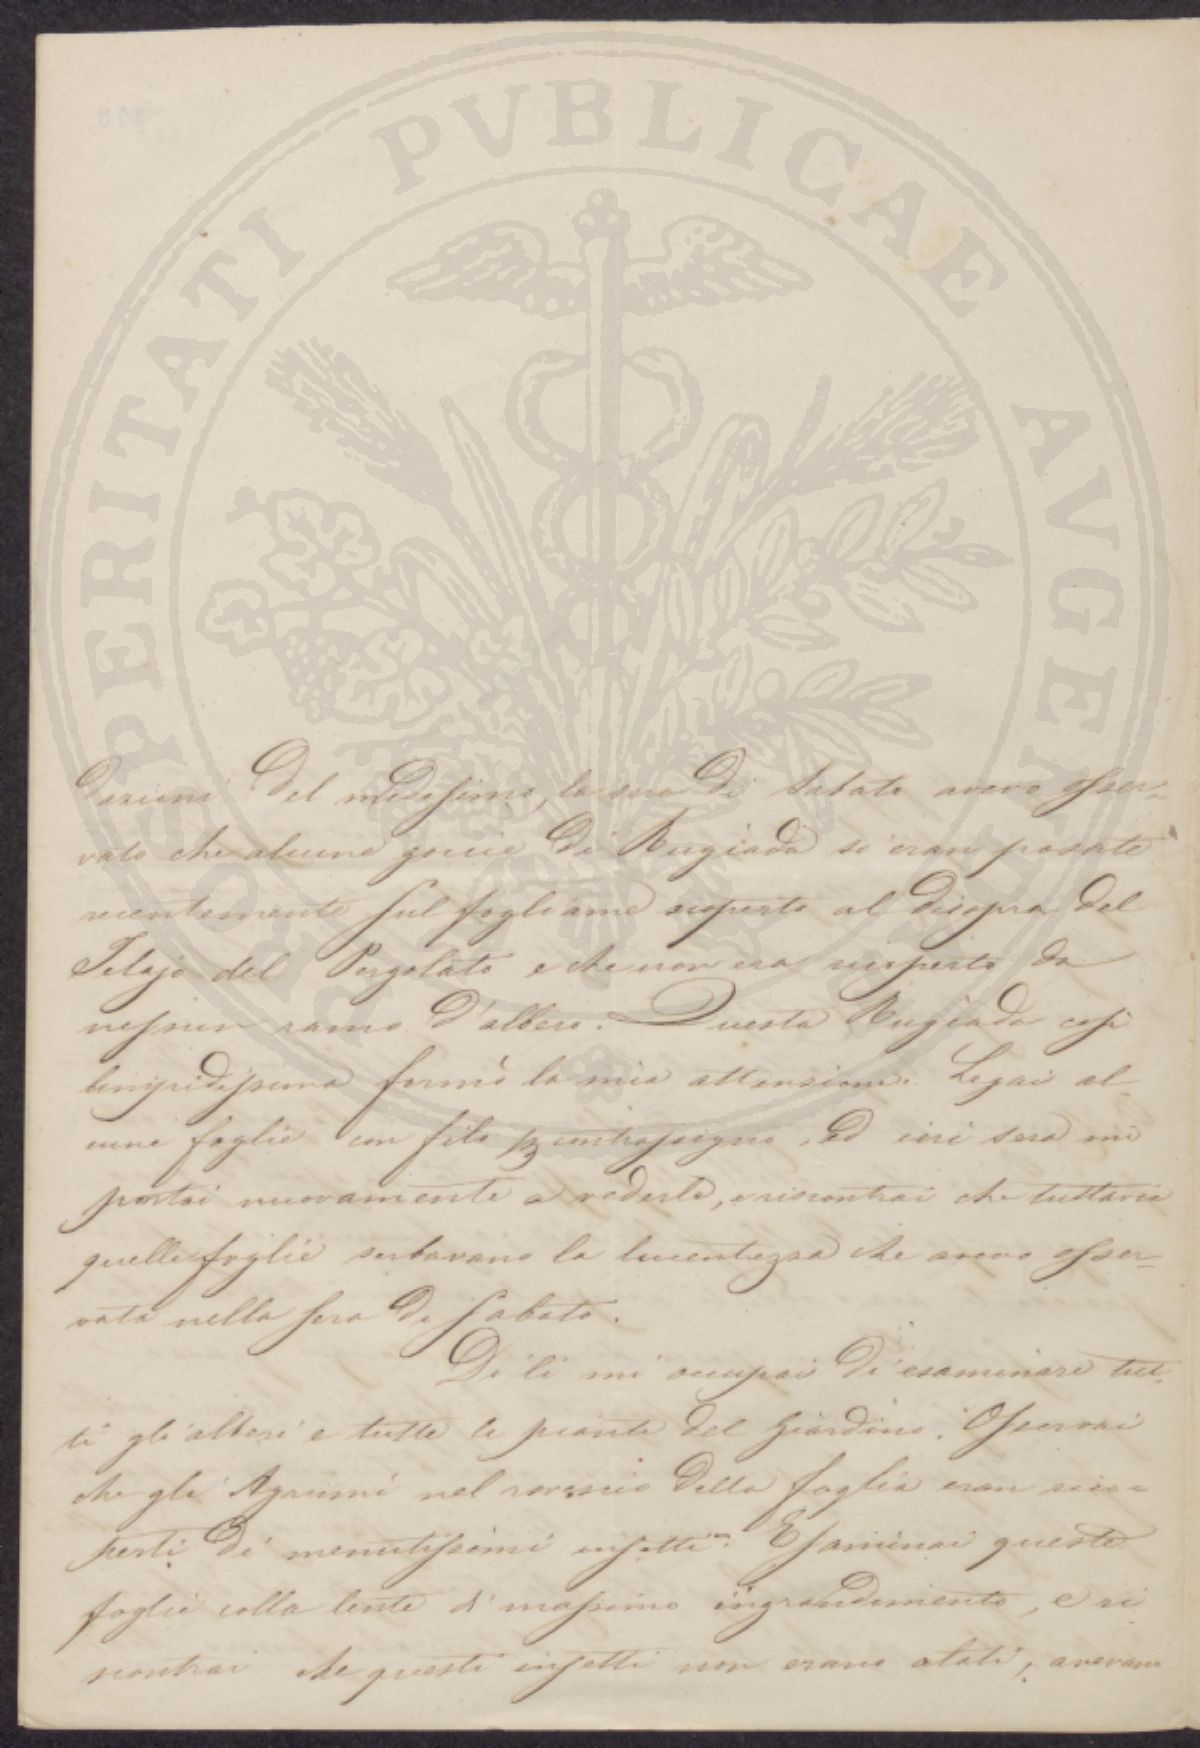 PROSPERITATI PVBLICAE AVGENDAE
dazioni del medesimo, la sera di Sabato avevo osser-
vato che alcune goccie di Rugiada si eran posate
recentemente sul fogliame scoperto al disopra del
Telajo del Pergolato e che non era ricoperto da
nessun ramo d'albero. Questa Rugiada così
limpidissima fermò la mia attenzione. Legai al-
cune foglie con filo p contrassegno, ed ieri sera mi
portai nuovamente a vederle, e riscontrai che tuttavia
quelle foglie serbavano la lucentezza che avevo osser-
vata nella sera di Sabato.
Di li mi occupai di esaminare tut-
ti gli alberi e tutte le piante del Giardino. Osservai
che gli Agrumi nel rovescio della foglia eran rico-
perti di menutissimi insetti. Esaminai queste
foglie colla lente di massimo ingrandimento, e ri
scontrai che questi insetti non erano alati, avevano